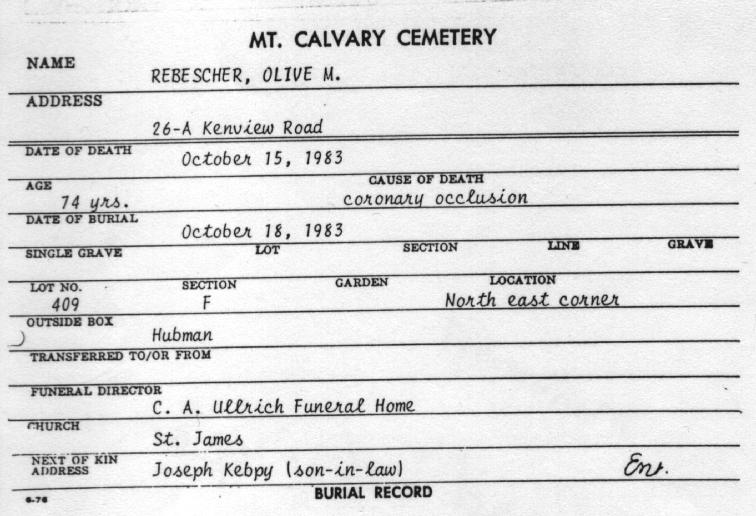 MT. CALVARY CEMETERY
NAME
REBESCHER, OLIVE M.
ADDRESS
26-A Kenview Road
DATE OF DEATH October 15, 1983
AGE CAUSE OF DEATH
74 yrs. coronary occlusion
DATE OF BURIAL
October 18, 1983
SINGLE GRAVE LOT SECTION LINE GRAVE
LOT NO. SECTION GARDEN LOCATION
409 F North east corner
OUTSIDE BOX
Hubman
TRANSFERRED TO/OR FROM
FUNERAL DIRECTOR
C. A. Ullrich Funeral Home
CHURCH
St. James
NEXT OF KIN
ADDRESS Joseph Kebpy (son-in-law) Ent.
6-76 BURIAL RECORD